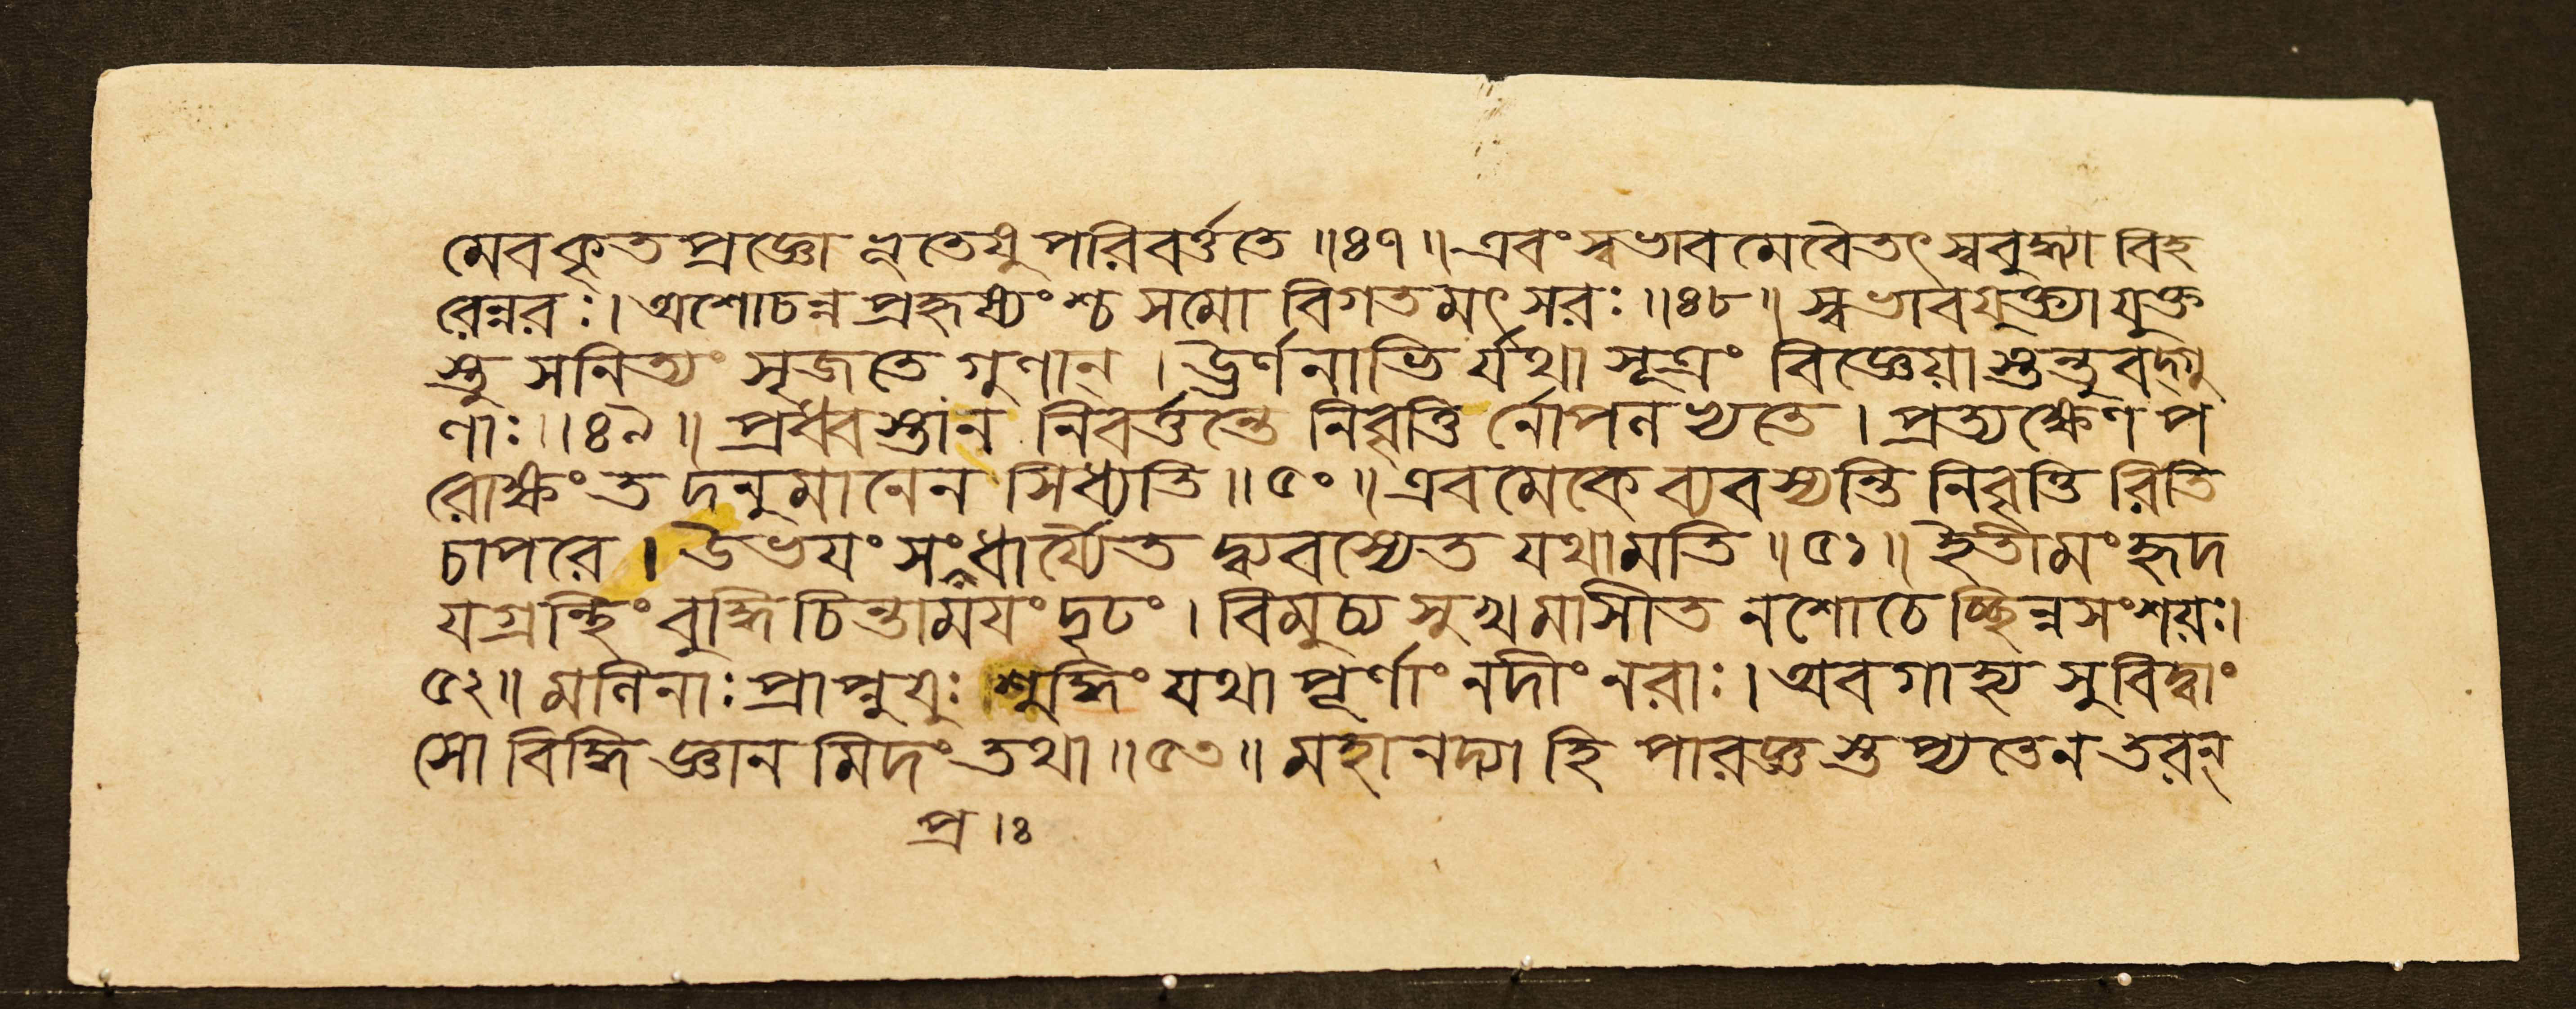 মেবকৃতপ্রজ্ঞো ন্নতেষুপরিবর্ত্ততে ॥৪৭॥ এবংস্বভাবমেবৈতৎস্ববুদ্ধ্যা বিহ
রেন্নরঃ। অশোচন্নপ্রহৃষ্যংশ্চ সমো বিগতমৎসরঃ ॥৪৮॥ স্বভাবযুক্ত্যাযুক্ত
স্তু সনিত্যং সৃজতে গুণান্ । ঊর্ণনাভি র্যথা সূত্রং বিজ্ঞেয়াস্তন্তুবদ্গু
ণাঃ ॥৪৯॥ প্রধ্বস্তান নিবর্ত্তন্তে নিবৃত্তি র্নোপলভ্যতে । প্রত্যক্ষেণ প
রোক্ষং তদনুমানেন সিধ্যতি ॥৫০॥ এবমেকে ব্যবস্যন্তি নিবৃত্তি রিতি
চাপরে । উভয়ং সংধার্য্যৈত দ্ব্যবস্যেত যথামতি ॥৫১॥ ইতীমং হৃদ
য়গ্রন্থিং বুদ্ধিচিন্তাময়ং দৃঢং । বিমুচ্য সুখমাসীত নশোচেচ্ছিন্নসংশয়ঃ।
৫২॥ মলিনাঃ প্রাপ্নুয়ুঃ শুদ্ধিং যথা পূর্ণাং নদীং নরাঃ । অবগাহ্য সুবিদ্বাং
সো বিদ্ধি জ্ঞান মিদং তথা ॥৫৩॥ মহানদ্যা হি পারজ্ঞ স্তপ্যতেন তরন্
প্র ।ঃ